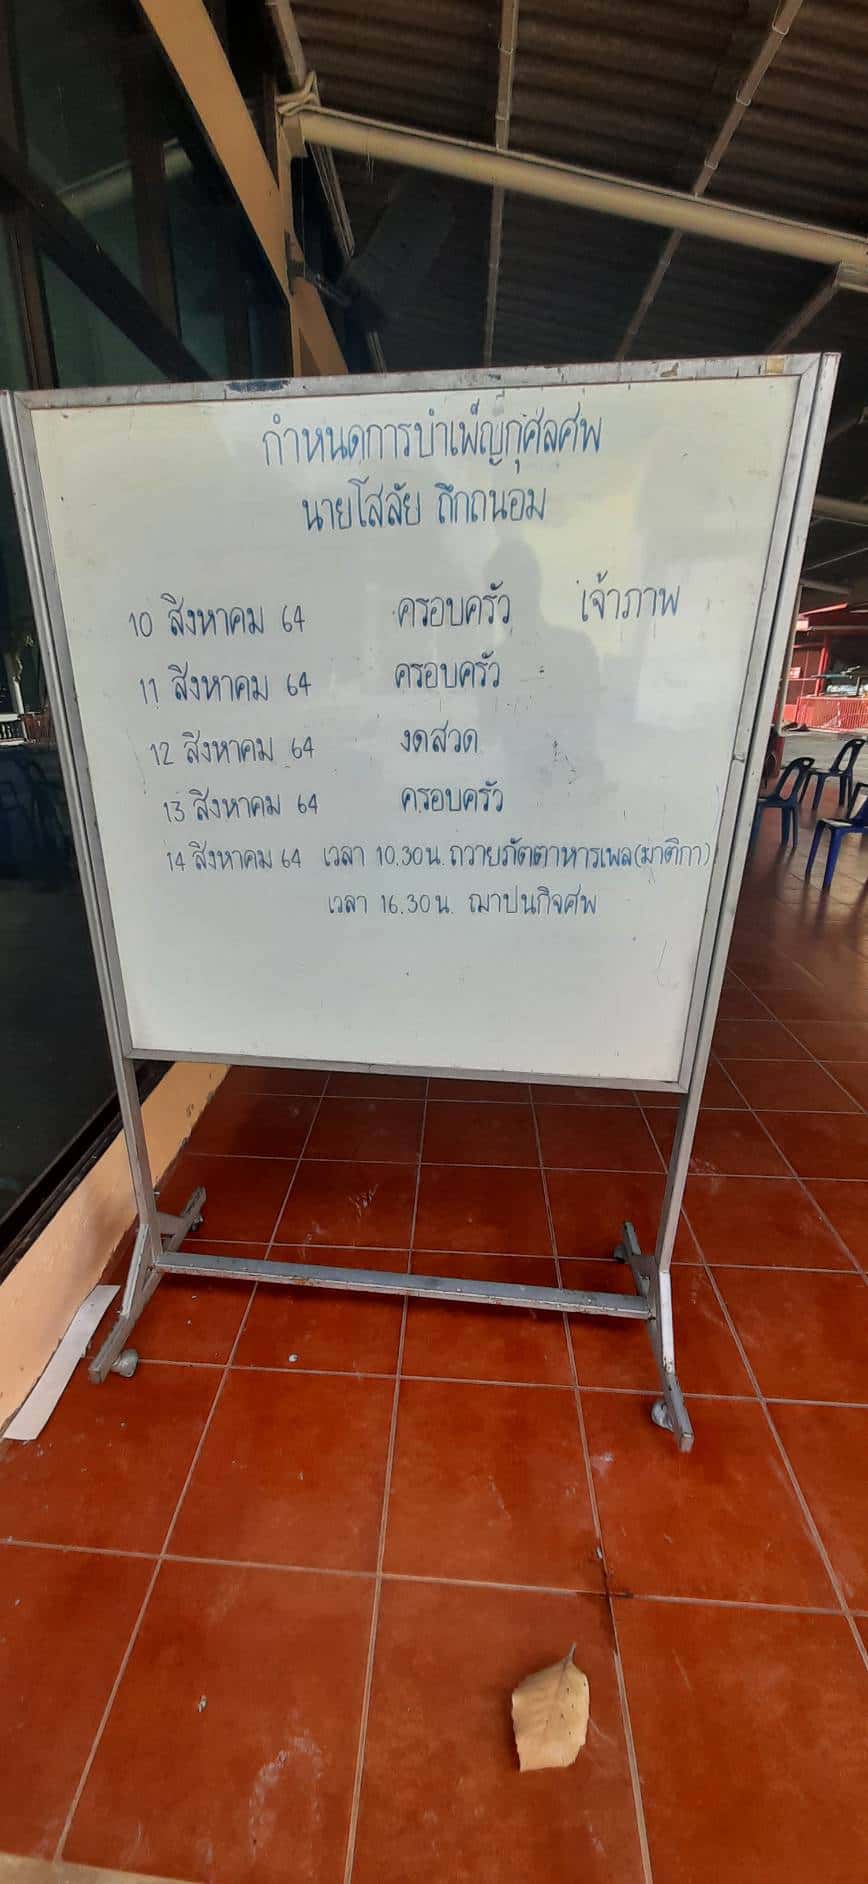 กำหนดการบำเพ็ญกุศลศพ
นายโสสัย ถึกถนอม
10 สิงหาคม 64 ครอบครัว เจ้าภาพ
11 สิงหาคม 64 ครอบครัว
12 สิงหาคม 64 งดสวด
13 สิงหาคม 64 ครอบครัว
14 สิงหาคม 64 เวลา 10.30 น. ถวายภัตตาหารเพล(มาติกา)
เวลา 16.30 น. ฌาปนกิจศพ